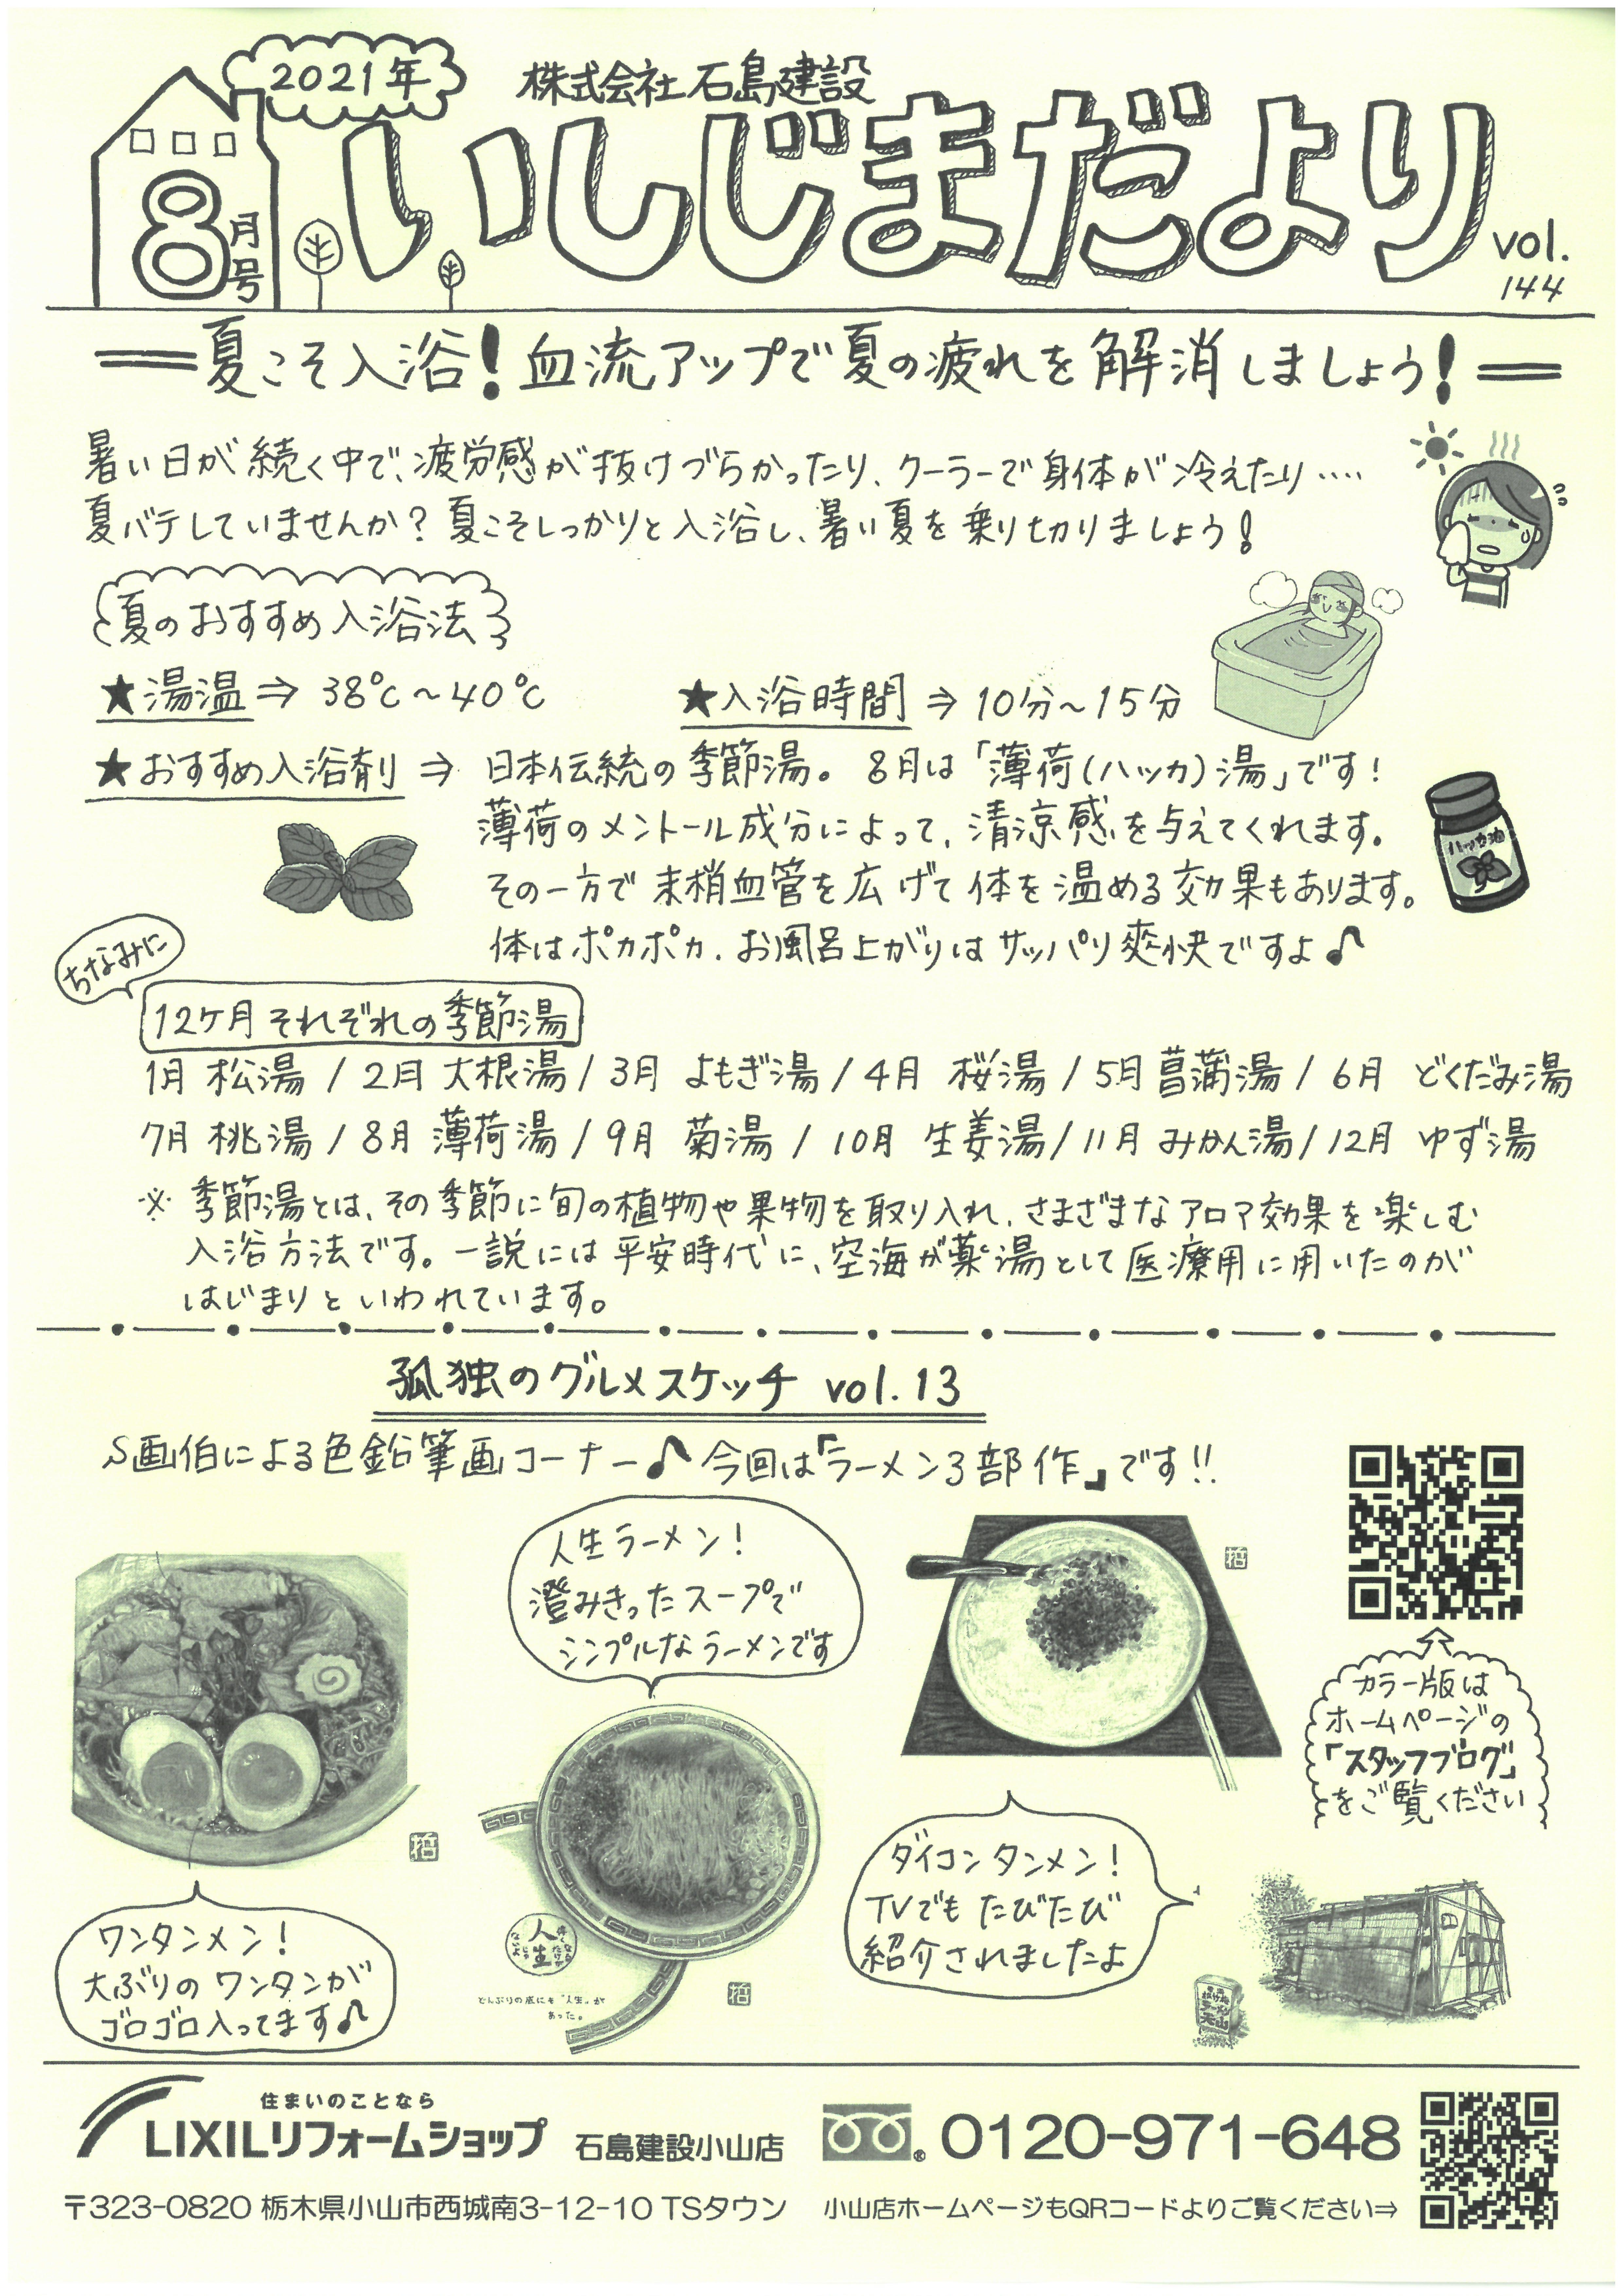 2021年
株式会社 石島建設
8月号
いしじまだより
vol.
144
夏こそ入浴!血流アップで夏の疲れを解消しましょう!
暑い日が続く中で、疲労感が抜けづらかったり、クーラーで身体が冷えたり‥‥
夏バテしていませんか?夏こそしっかりと入浴し、暑い夏を乗り切りましょう!
夏のおすすめ入浴法
★湯温⇒38℃~40℃
★入浴時間⇒10分~15分
★おすすめ入浴剤⇒日本伝統の季節湯。8月は「薄荷(ハッカ)湯」です!
薄荷のメントール成分によって、清涼感を与えてくれます。
その一方で末梢血管を広げて体を温める効果もあります。
体はポカポカ、お風呂上がりはサッパリ爽快ですよ♪
ハッカ油
ちなみに
12ケ月それぞれの季節湯
1月 松湯/2月 大根湯/3月 よもぎ湯/4月 桜湯/5月 菖蒲湯/6月 どくだみ湯
7月 桃湯/8月 薄荷湯/9月 菊湯/10月 生姜湯/11月 みかん湯/12月 ゆず湯
※季節湯とは、その季節に旬の植物や果物を取り入れ、さまざまなアロマ効果を楽しむ
入浴方法です。一説には平安時代に、空海が薬湯として医療用に用いたのが
はじまりといわれています。
孤独のグルメスケッチ vol.13
S画伯による色鉛筆画コーナー♪今回は『ラーメン3部作』です!!
人生ラーメン!
澄みきったスープで
シンプルなラーメンです
哲
カラー版は
ホームページの
「スタッフブログ」
をご覧ください
哲
ワンタンメン!
大ぶりのワンタンが
ゴロゴロ入ってます♪
人生
どんぶりの底にも"人生"が
あった。
哲
ダイコンタンメン!
TVでもたびたび
紹介されましたよ
ラーメン
住まいのことなら
LIXILリフォームショップ 石島建設小山店
0120-971-648
〒323-0820 栃木県小山市西城南3-12-10 TSタウン
小山店ホームページもQRコードよりご覧ください⇒